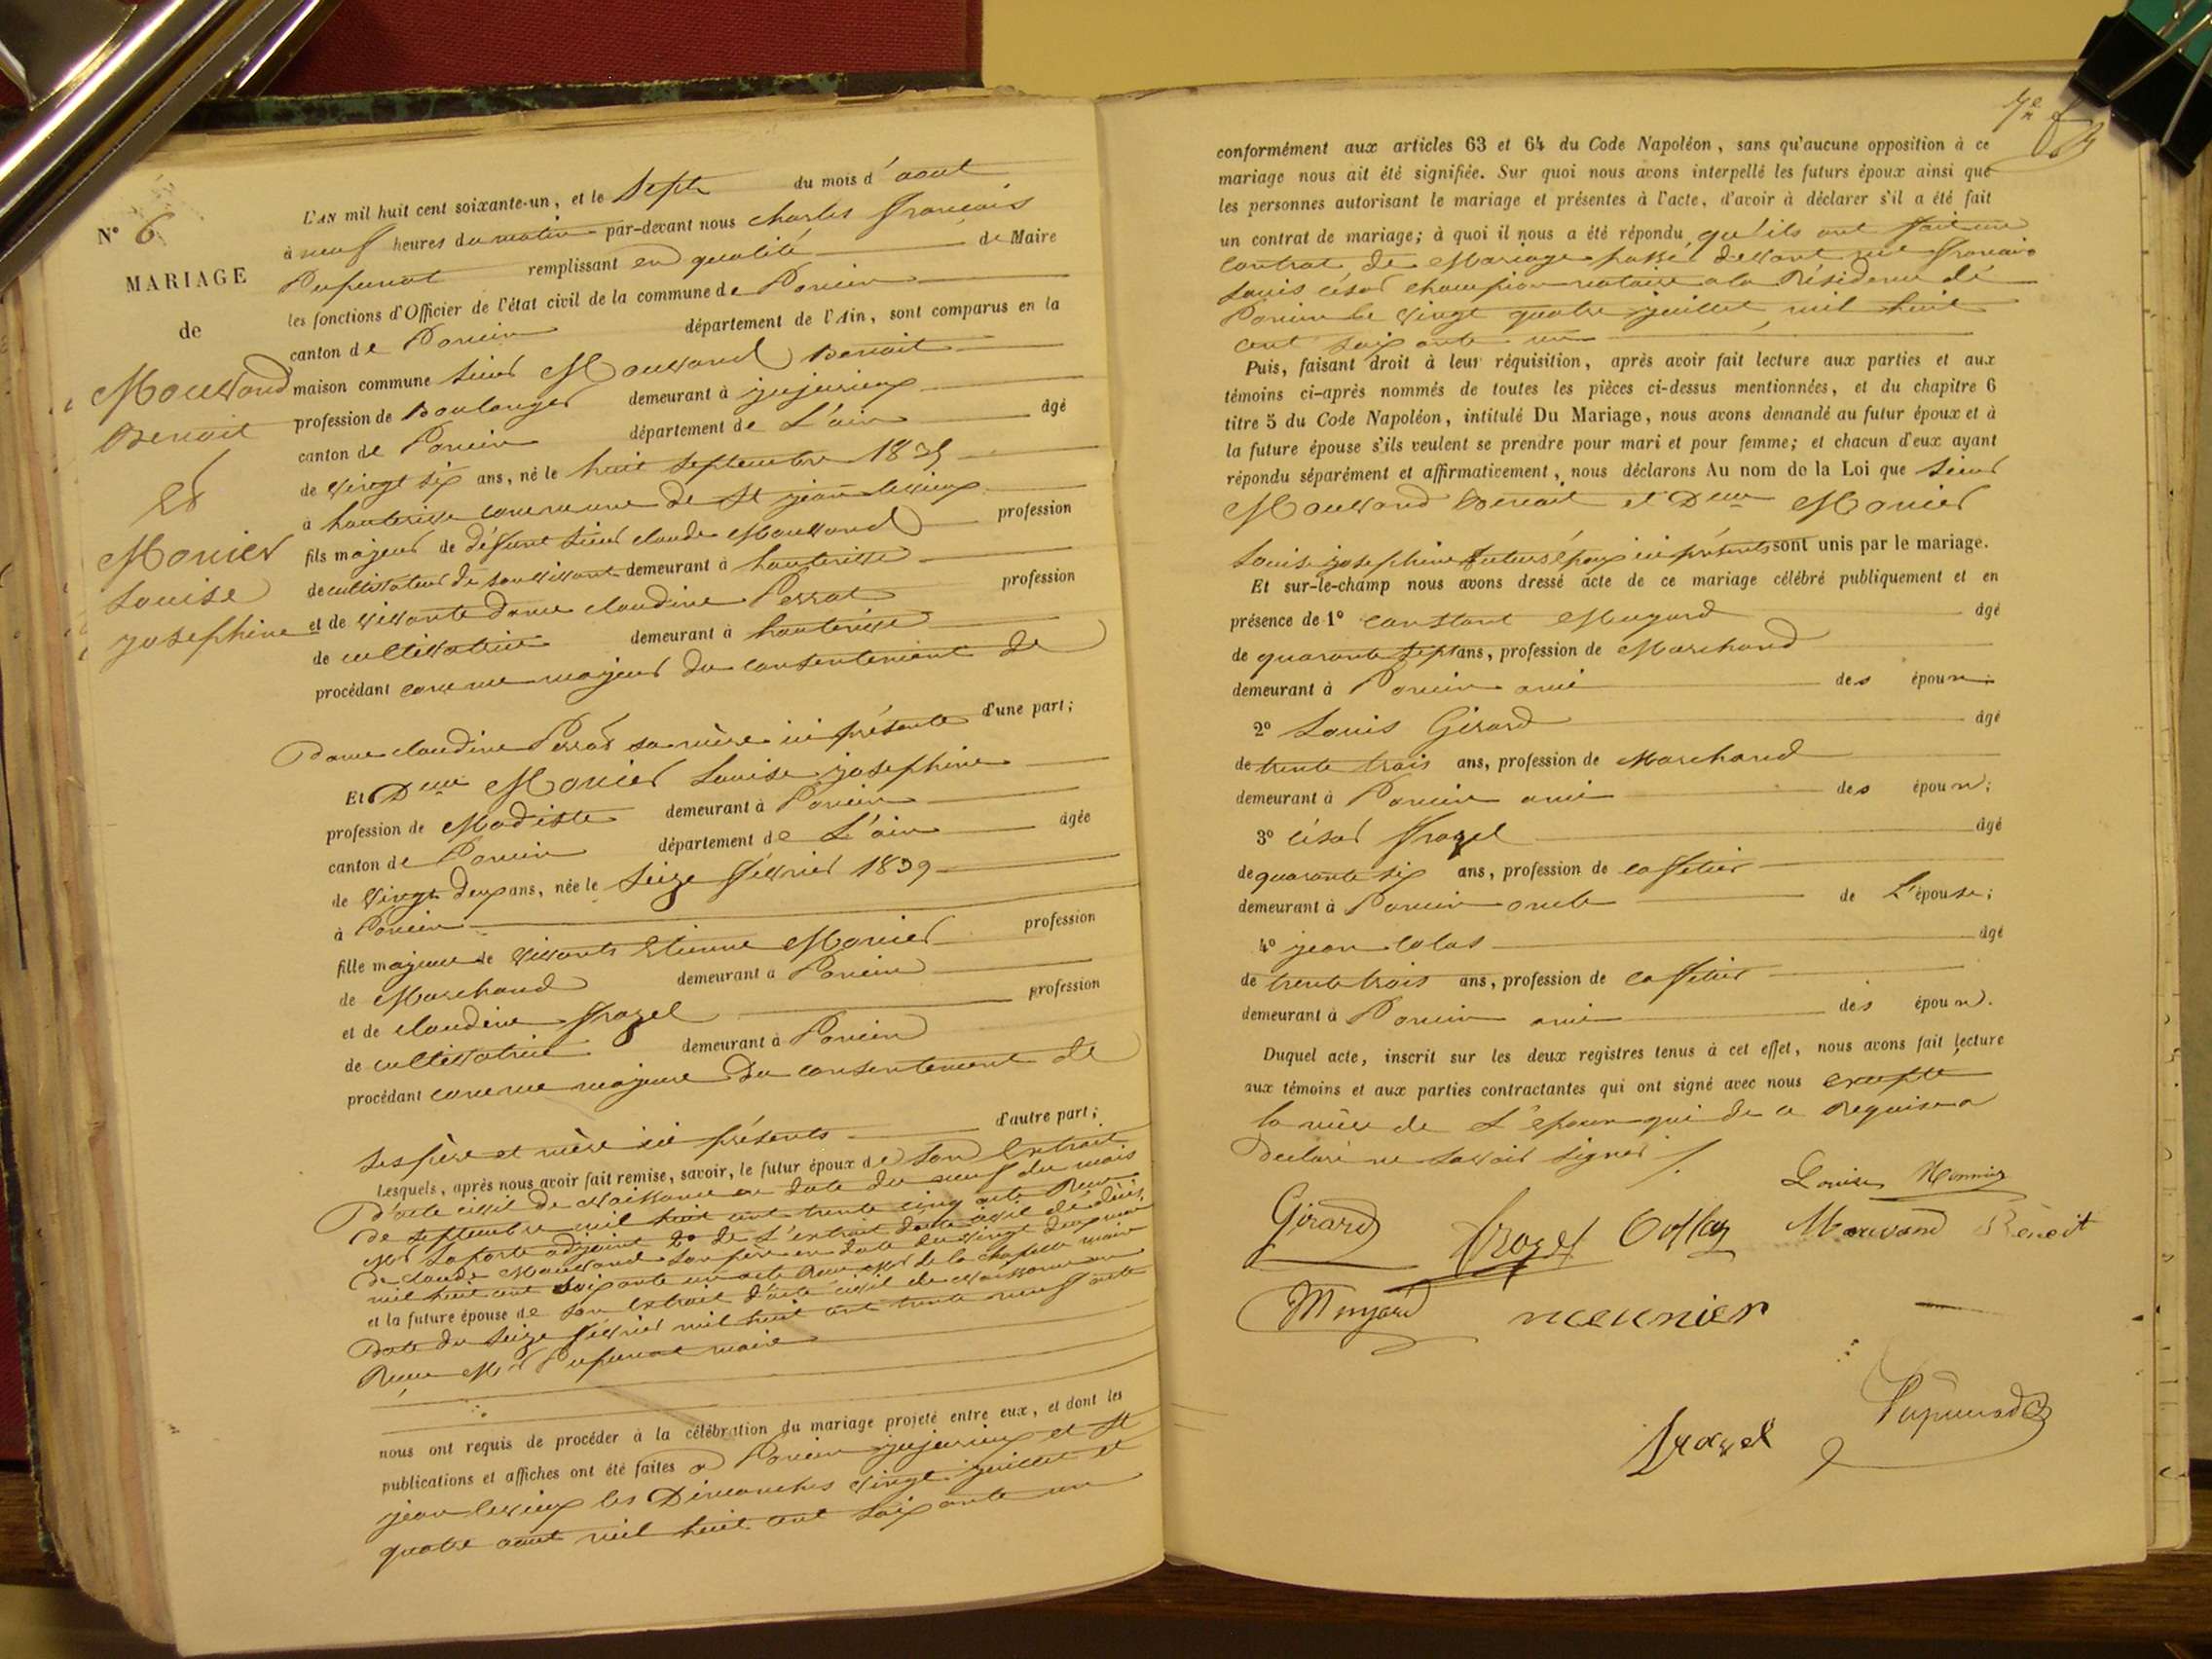 N° 6
MARIAGE
de
Mouvand
Benoit
Et
Monier
Louise
josephine
L'AN mil huit cent soixante-un, et le Sept du mois d'aout
à neuf heures du matin par-devant nous charles françois
Pupunat remplissant en qualité de Maire
les fonctions d'Officier de l'état civil de la commune de Poncin
canton de Poncin département de l'Ain, sont comparus en la
maison commune sieur Mouvand Benoit
profession de Boulanger demeurant à jujurieux
canton de Poncin département de L'ain âgé
de vingt six ans, né le huit septembre 1835
à hauterisse commune de St jean levieux
fils majeur de défunt sieur claude Mouvand profession
de cultivateur de son vivant demeurant à hauterisse
et de vivante dame claudine Perrat profession
de cultivatrice demeurant à hauterisse
procédant comme majeur du consentement de
Dame claudine Perrat sa mère ici présente d'une part;
Et Dlle Monier Louise josephine
profession de Modiste demeurant à Poncin
canton de Poncin département de L'ain âgée
de vingt deux ans, née le seize février 1839
à Poncin
fille majeure de vivants Etienne Monier profession
de Marchand demeurant à Poncin
et de claudine frazel profession
de cultivatrice demeurant à Poncin
procédant comme majeure du consentement de
ses père et mère ici présents d'autre part;
Lesquels, après nous avoir fait remise, savoir, le futur époux de son Extrait
D'acte civil de naissance en date du neuf du mois
de septembre mil huit cent trente cinq acte Reçu
Mr Laporte adjoint 2° de L'extrait d'acte civil de décès
de claude Mouvand son père en date du vingt deux
mil huit cent soixante un acte Reçu Mr de la chapelle maire
et la future épouse de son Extrait d'acte civil de naissance en
Date du seize février mil huit cent trente neuf acte
Reçu Mr Pupunat maire
nous ont requis de procéder à la célébration du mariage projeté entre eux, et dont les
publications et affiches ont été faites a Poncin jujurieux et St
jean levieux les Dimanches vingt juillet et
quatre aout mil huit cent soixante un
conformément aux articles 63 et 64 du Code Napoléon, sans qu'aucune opposition à ce
mariage nous ait été signifiée. Sur quoi nous avons interpellé les futurs époux ainsi que
les personnes autorisant le mariage et présentes à l'acte, d'avoir à déclarer s'il a été fait
un contrat de mariage; à quoi il nous a été répondu qu'ils ont fait un
contrat de Mariage passé devant me françois
Louis césar champion notaire a la Résidence de
Poncin le vingt quatre juillet mil huit
cent soixante un
Puis, faisant droit à leur réquisition, après avoir fait lecture aux parties et aux
témoins ci-après nommés de toutes les pièces ci-dessus mentionnées, et du chapitre 6
titre 5 du Code Napoléon, intitulé Du Mariage, nous avons demandé au futur époux et à
la future épouse s'ils veulent se prendre pour mari et pour femme; et chacun d'eux ayant
répondu séparément et affirmativement, nous déclarons Au nom de la Loi que sieur
Mouvand Benoit et Dlle Monier
Louise josephine futurs époux ici présents sont unis par le mariage.
Et sur-le-champ nous avons dressé acte de ce mariage célébré publiquement et en
présence de 1° constant Mugard âgé
de quarante sept ans, profession de Marchand
demeurant à Poncin ami des époux
2° Louis Girard âgé
de trente trois ans, profession de Marchand
demeurant à Poncin ami des époux;
3° César frazel âgé
de quarante six ans, profession de caffetier
demeurant à Poncin oncle de L'épouse;
4° jean colas âgé
de trente trois ans, profession de caffetier
demeurant à Poncin ami des époux.
Duquel acte, inscrit sur les deux registres tenus à cet effet, nous avons fait lecture
aux témoins et aux parties contractantes qui ont signé avec nous excepté
la mère de L'époux qui de ce Requise a
Déclaré ne savoir signer
Louise Monnier
Girard frazel Collas Mouvand Benoit
Mugard meunier
frazel Pupunat